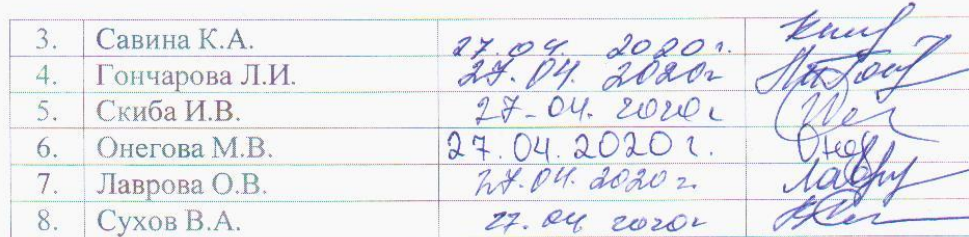 3. Савина К.А. 27.04. 2020г.
4. Гончарова Л.И. 27.04. 2020г
5. Скиба И.В. 27-04. 2020г
6. Онегова М.В. 27.04.2020г.
7. Лаврова О.В. 27.04.2020г.
8. Сухов В.А. 27.04 2020г